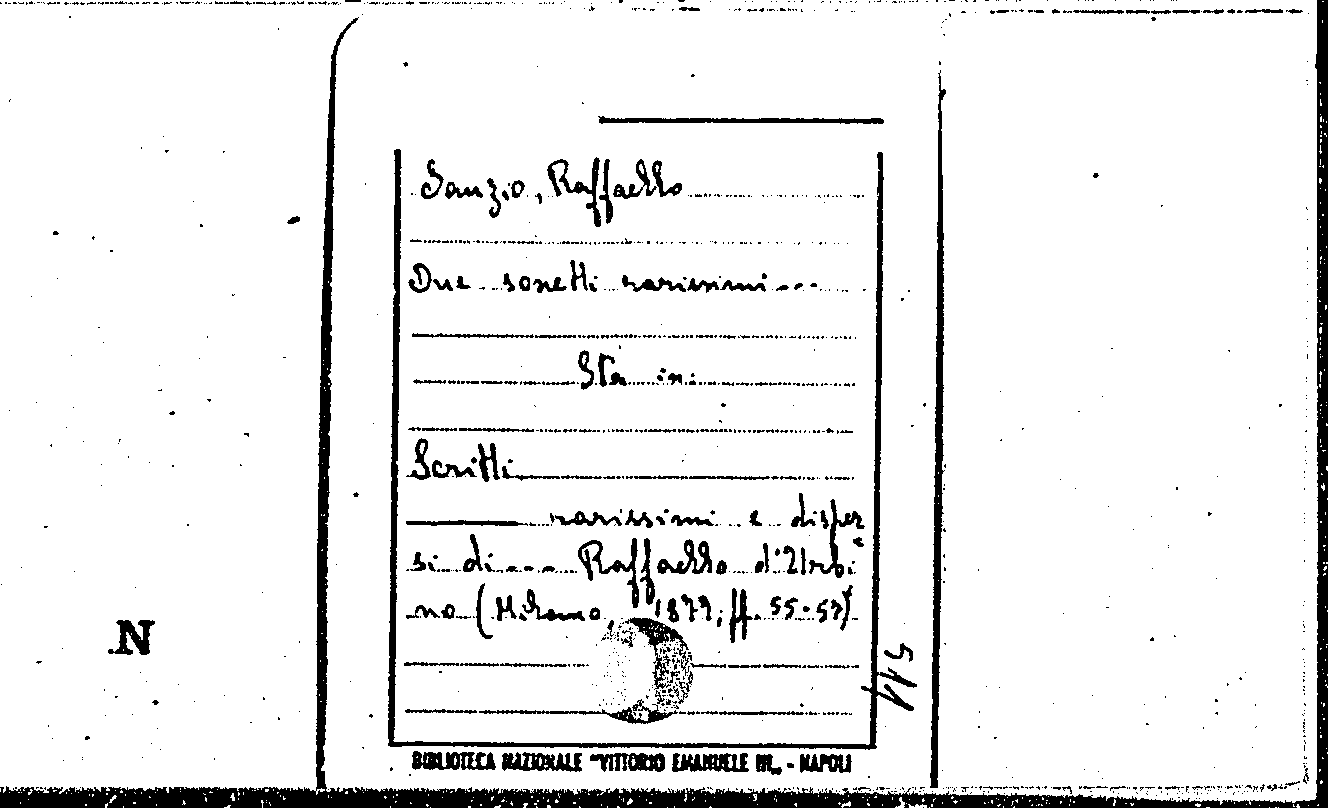 Sanzio, Raffaello
Due sonetti rarissimi...
Sta in:
Scritti
rarissimi e disper
si di... Raffaello d'Urbi
no (Milano, 1877, ff. 55-57)
511
N
BIBLIOTECA NAZIONALE "VITTORIO EMANUELE III„ - NAPOLI